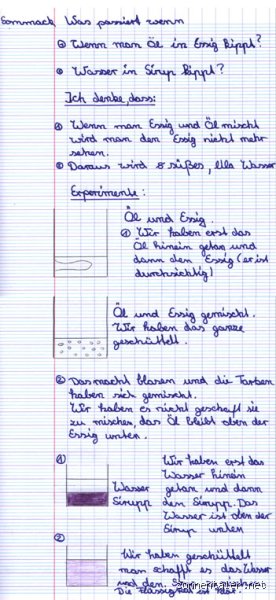 Sommack Was passiert wenn
① Wenn man Öl in Essig kippt?
② Wasser in Sirup kippt?
Ich denke, dass:
① Wenn man Essig und Öl mischt
wird man den Essig nicht mehr
sehen.
② Daraus wird süßes, lila Wasser
Experimente:
Öl und Essig.
① Wir haben erst das
Öl hinein getan und
dann den Essig (er ist
durchsichtig)
Öl und Essig gemischt.
Wir haben das ganze
geschüttelt.
② Das macht blasen und die Farben
haben sich gemischt.
Wir haben es nicht geschaft sie
zu mischen, das Öl bleibt oben der
Essig unten.
① Wir haben erst das
Wasser hinein
Wasser getan und dann
Sirupp den Sirupp. Das
Wasser ist oben der
Sirup unten
② Wir haben geschüttelt
man schafft es das Wasser
und den
Die flüssigkeit ist lila.
sonnentaler.net